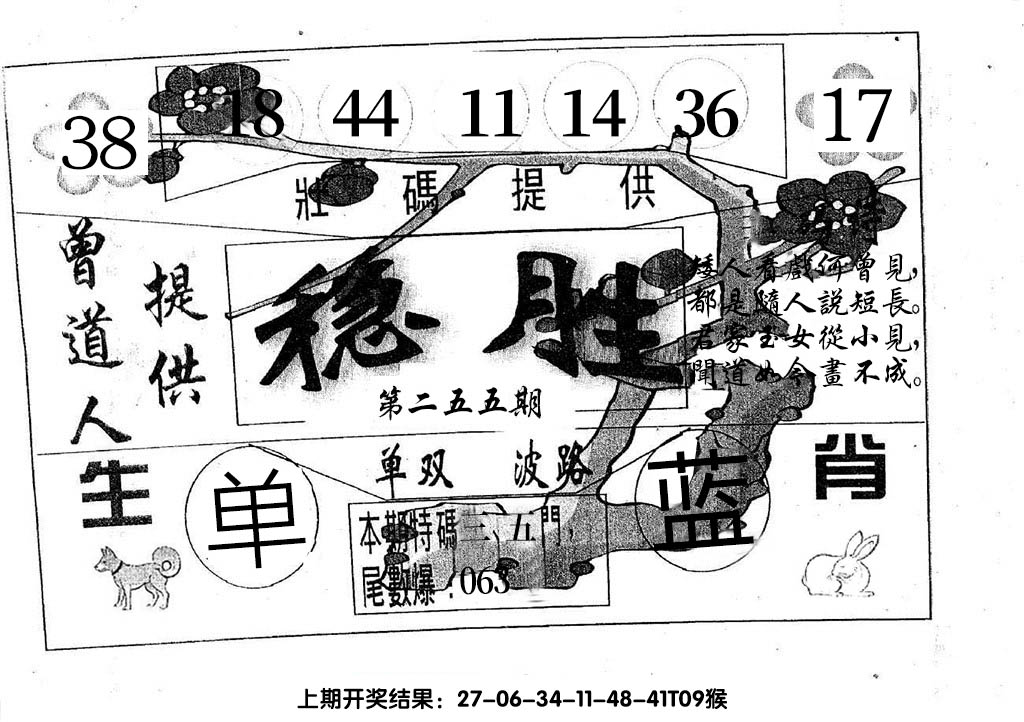 38 18 44 11 14 36 17
壯碼提供
特
曾道人
提供
稳胜
第二五五期
矮人看戲何曾見，
都是隨人説短長。
君家玉女從小見，
聞道如今畫不成。
生肖
单双 波路
单 蓝
本期特碼三、五門，
尾數爆：063
上期开奖结果：27-06-34-11-48-41T09猴